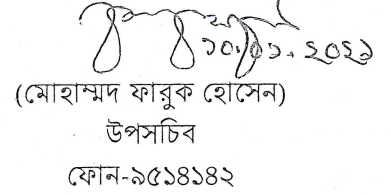 ১০.০১.২০২১
(মোহাম্মদ ফারুক হোসেন)
উপসচিব
ফোন-৯৫১৪১৪২